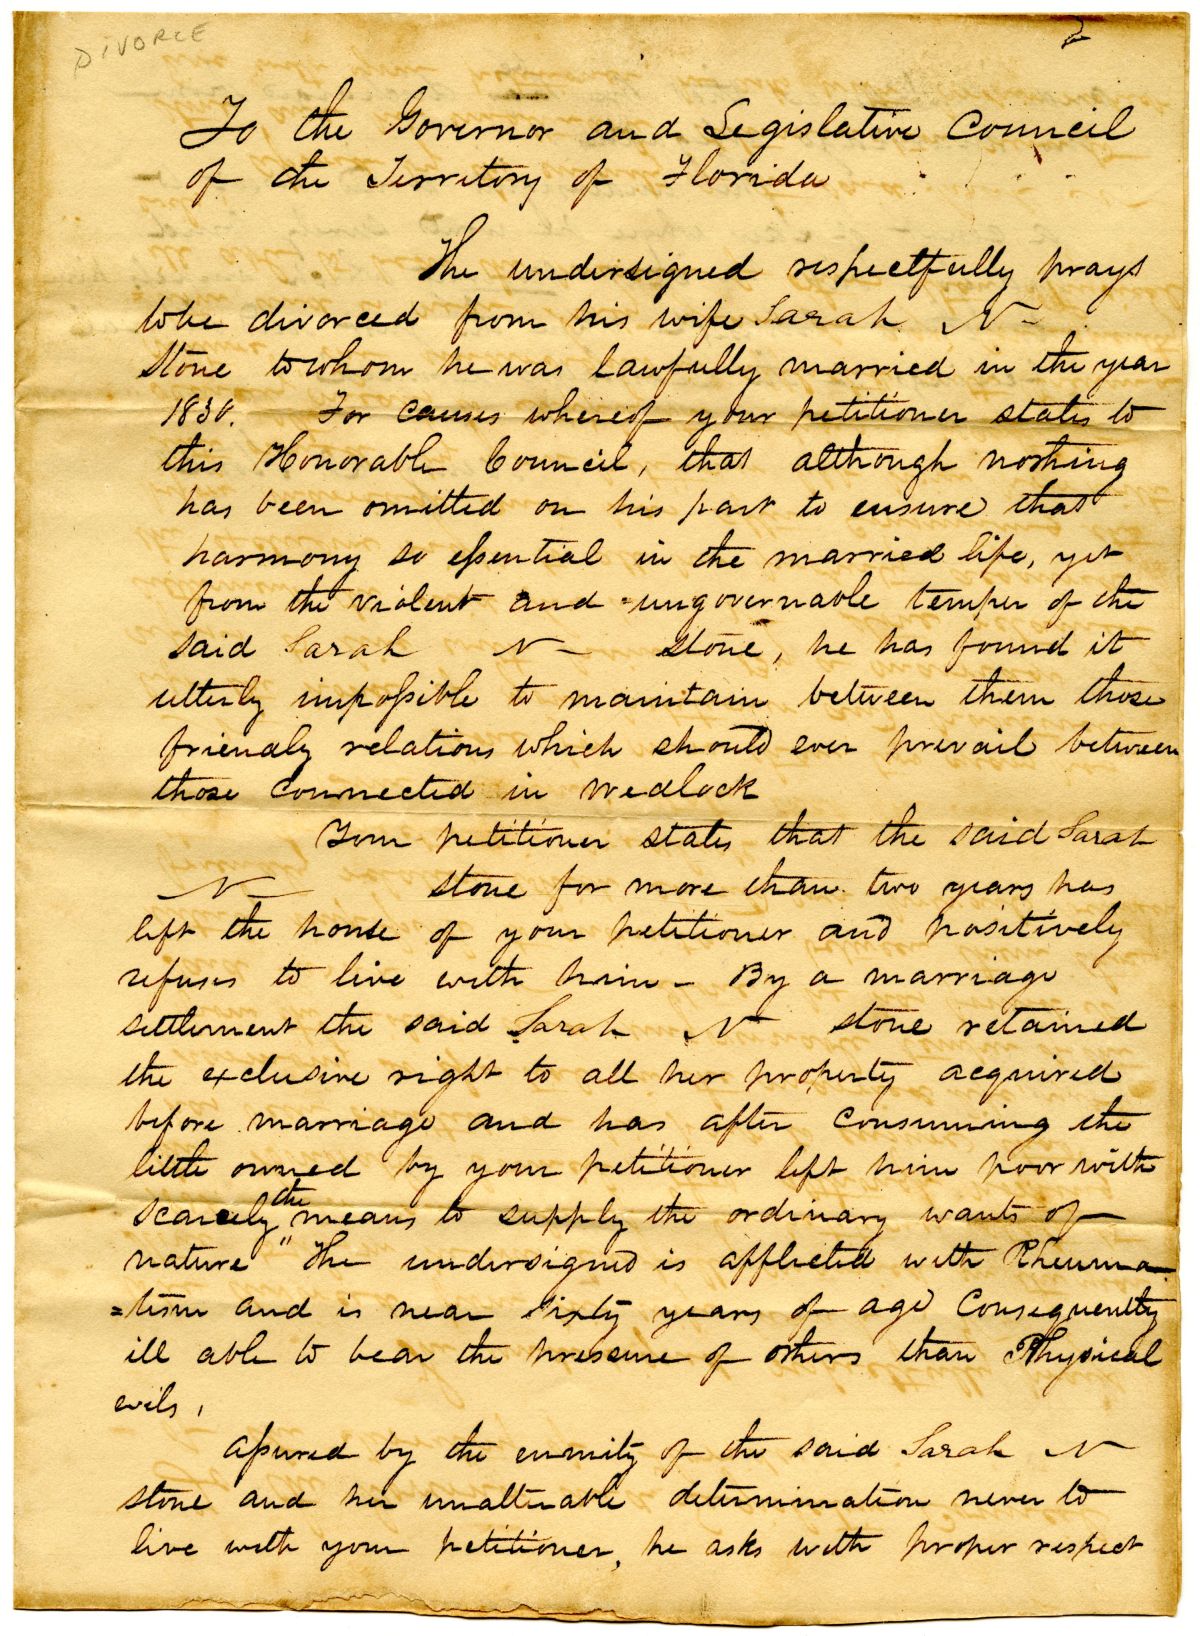 DIVORCE
2
To the Governor and Legislative Council
of the Territory of Florida
The undersigned respectfully prays
to be divorced from his wife Sarah N
Stone to whom he was lawfully married in the year
1830. For causes whereof your petitioner states to
this Honorable Council, that although nothing
has been omitted on his part to ensure that
harmony so essential in the married life, yet
from the violent and ungovernable temper of the
said Sarah N Stone, he has found it
utterly impossible to maintain between them those
friendly relations which should ever prevail between
those connected in wedlock
Your petitioner states that the said Sarah
N Stone for more than two years has
left the house of your petitioner and positively
refuses to live with him - By a marriage
settlement the said Sarah N Stone retained
the exclusive right to all her property acquired
before marriage and has after consuming the
little owned by your petitioner left him poor with
scarcely the means to supply the ordinary wants of
nature" The undersigned is afflicted with Rheuma
=tism and is near sixty years of age Consequently
ill able to bear the pressure of others than Physical
evils,
Assured by the enmity of the said Sarah N
Stone and her unalterable determination never to
live with your petitioner, he asks with proper respect